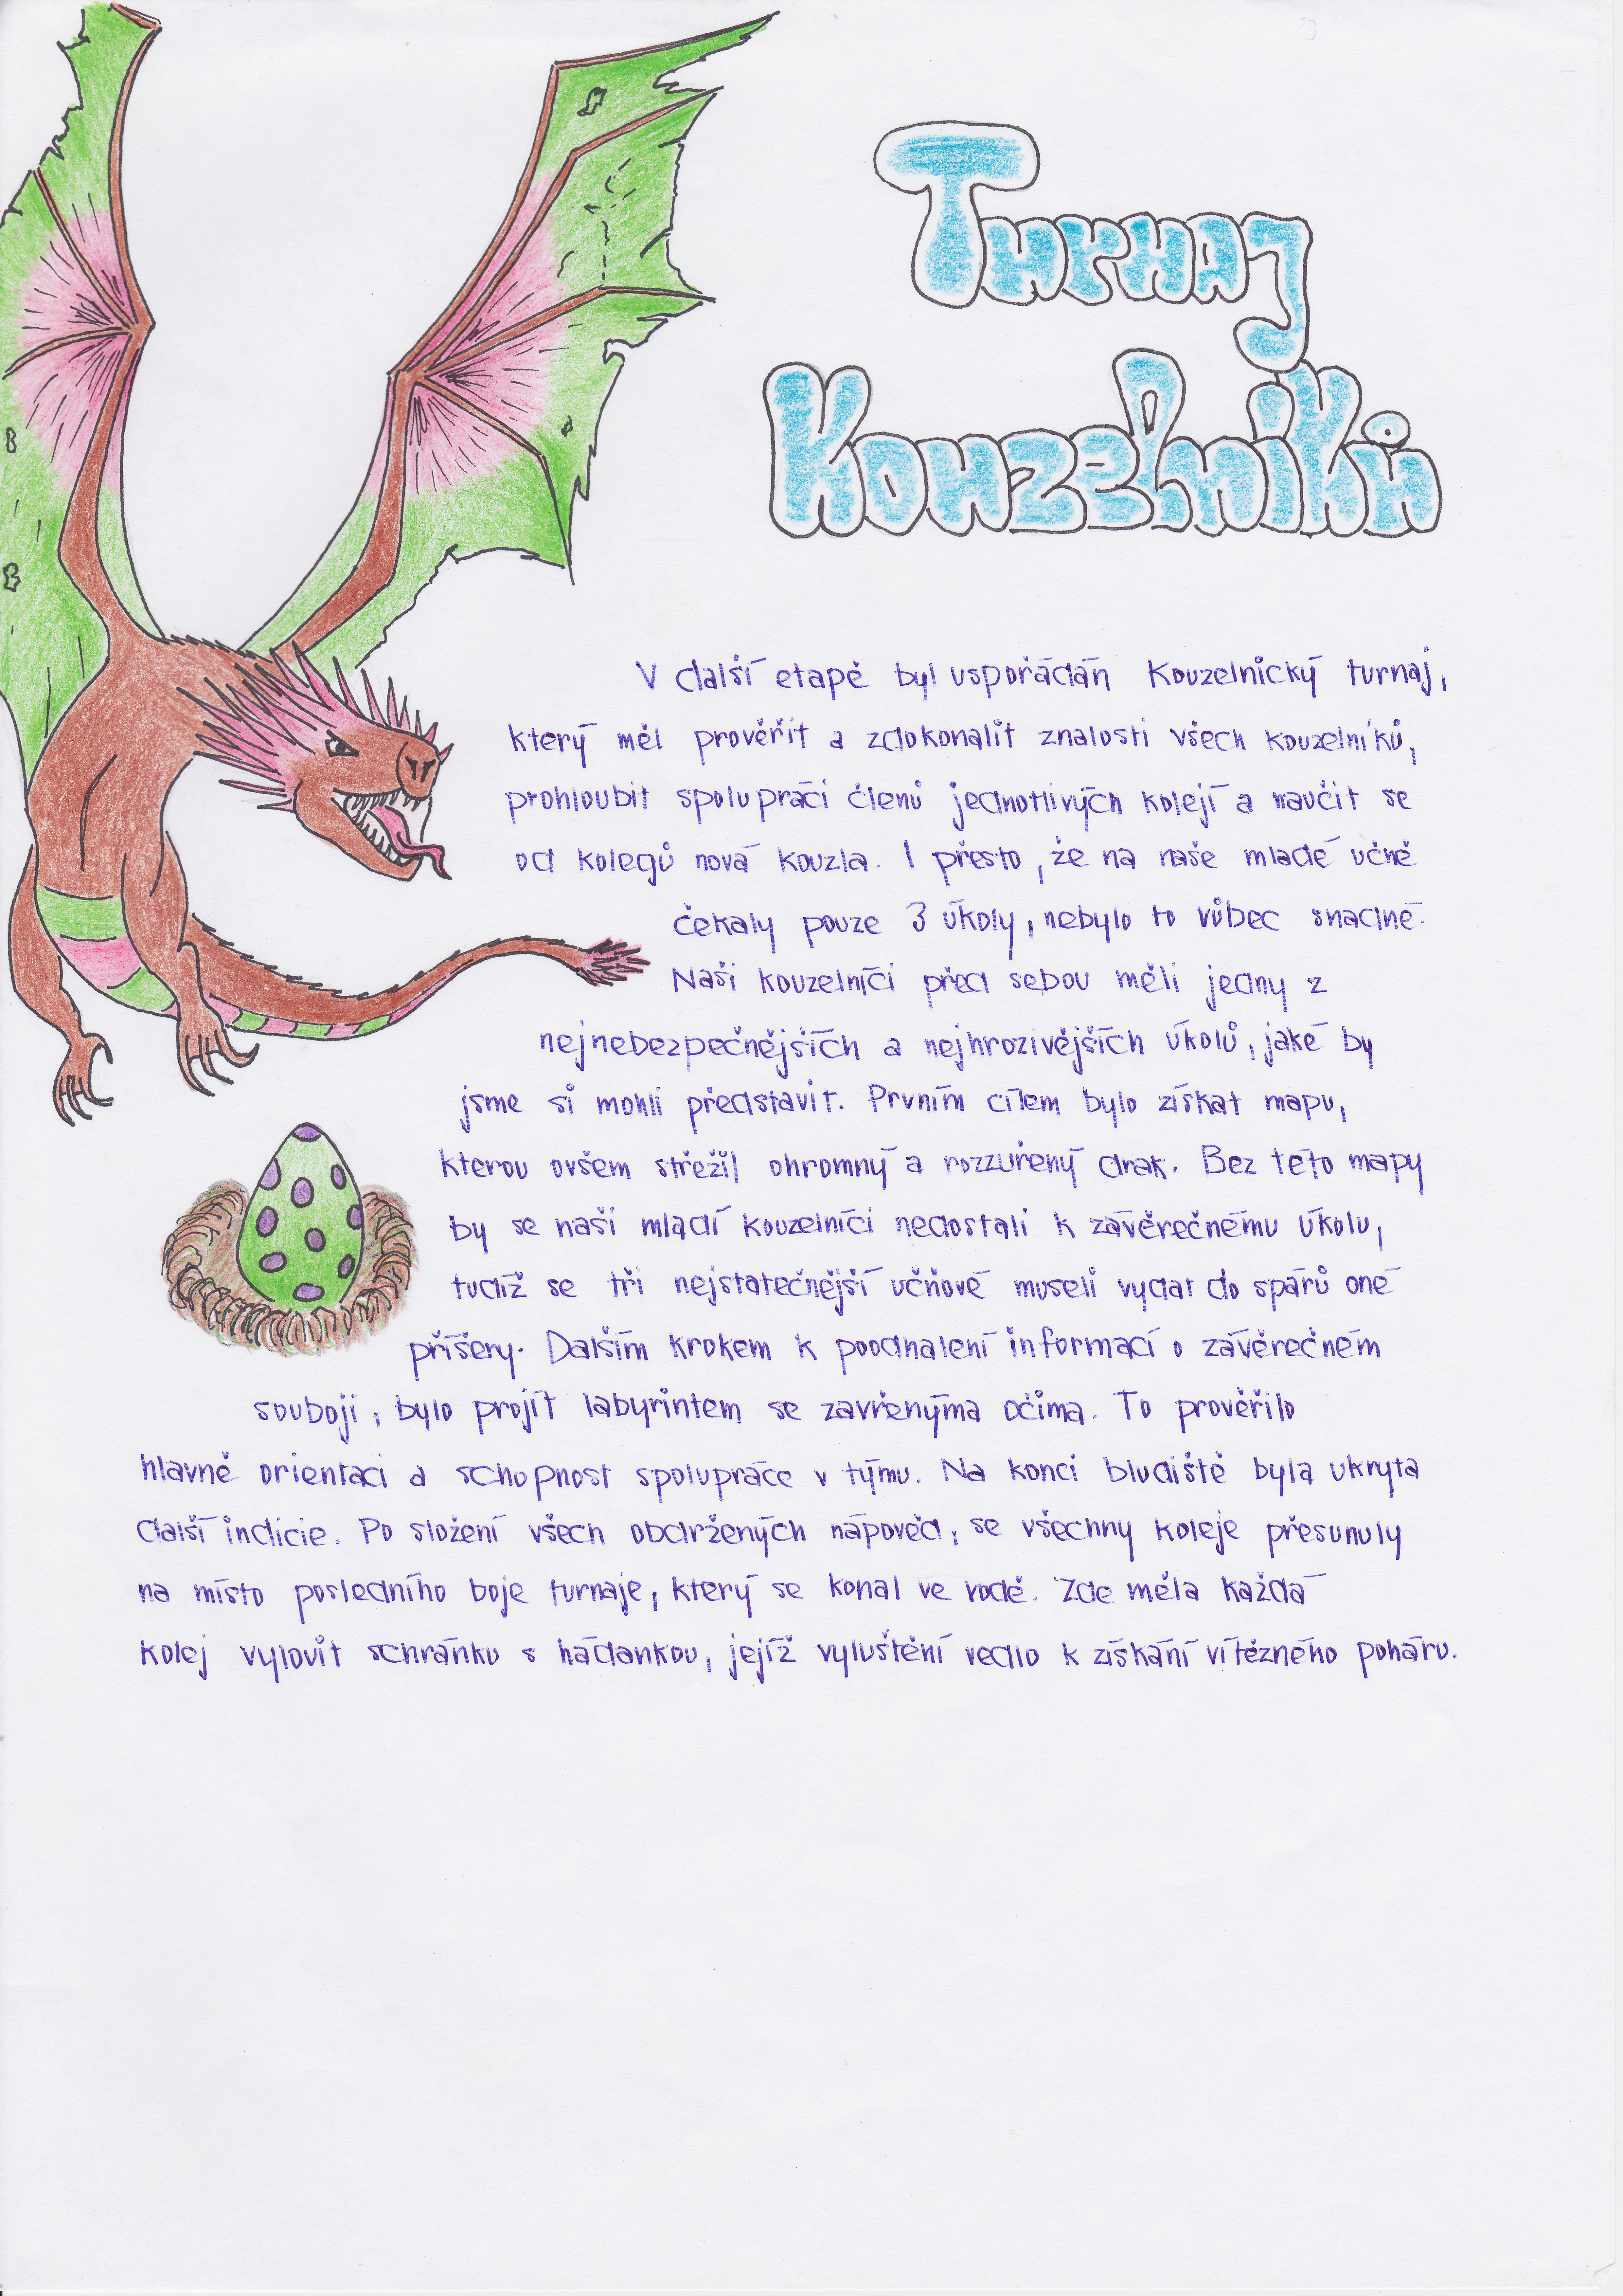 Turnaj
Kouzelníků
V další etapě byl uspořádán Kouzelnický turnaj,
který měl prověřit a zdokonalit znalosti všech kouzelníků,
prohloubit spolupráci členů jednotlivých kolejí a naučit se
od kolegů nová kouzla. I přesto, že na naše mladé učně
čekaly pouze 3 úkoly, nebylo to vůbec snadné.
Naši kouzelníci před sebou měli jedny z
nejnebezpečnějších a nejhrozivějších úkolů, jaké by
jsme si mohli představit. Prvním cílem bylo získat mapu,
kterou ovšem střežil ohromný a rozzuřený drak. Bez této mapy
by se naši mladí kouzelníci nedostali k závěrečnému úkolu,
tudíž se tři nejstatečnější učňové museli vydat do spárů oné
příšery. Dalším krokem k poodhalení informací o závěrečném
souboji, bylo projít labyrintem se zavřenýma očima. To prověřilo
hlavně orientaci a schopnost spolupráce v týmu. Na konci bludiště byla ukryta
další indície. Po složení všech obdržených nápověd, se všechny koleje přesunuly
na místo posledního boje turnaje, který se konal ve vodě. Zde měla každá
kolej vylovit schránku s hádankou, jejíž vyluštění vedlo k získání vítězného poháru.